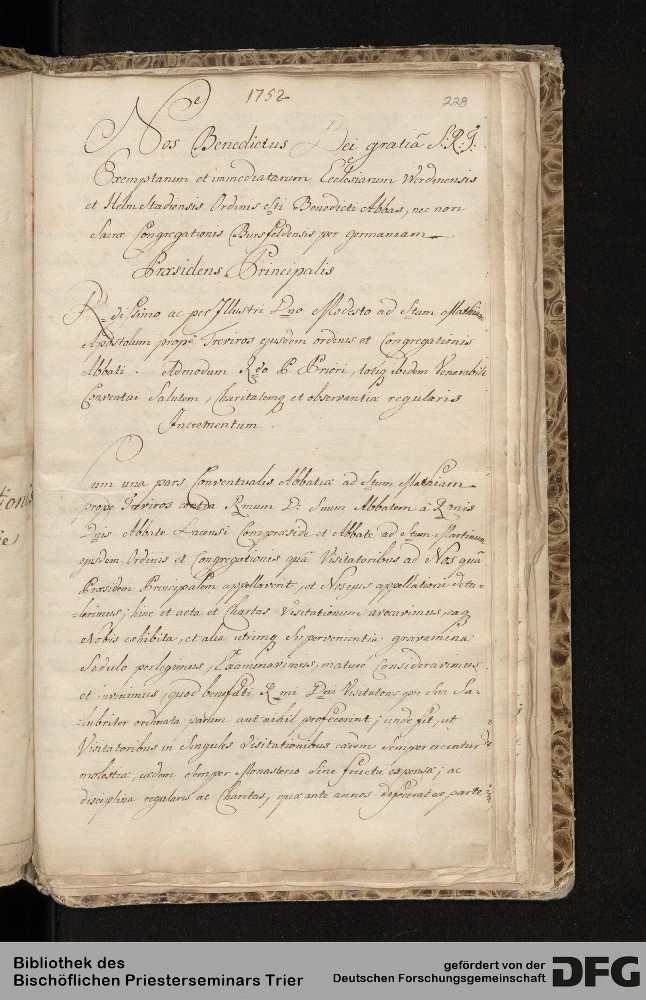 1752
223
Nos Benedictus Dei gratiâ S: R: I:
Exemptarum et immediatarum Ecclesiarum Werdinensis
et Helmstadiensis Ordinis Sti Benedicti Abbas, nec non
Sacræ Congregationis Bursfeldensis per germaniam
Præsidens Principalis
Rdissimo ac per Illustri Dno Modesto ad Stum Mathiam
Apostolum propè Treviros ejusdem ordinis et Congregationis
Abbati. Admodum Rdo P. Priori, totiq ibidem Venerabili
Conventui Salutem, Charitatemq et observantiæ regularis
Incrementum
Cum una pars Conventualis Abbatiæ ad Stum Mathiam
prope Treviros contra Rmum D: Suum Abbatem à Rmis
Dnis Abbate Lacensi Compræside et Abbate ad Stum Martinum
ejusdem Ordinis et Congregationis quâ Visitatoribus ad Nos quâ
Præsidem Principalem appellaverit, et Nos ejus appellationi detu-
-lerimus; hinc et acta et Chartas Visitationum avocavimus, eaq
Nobis exhibita, et alia utrimq Supervenientia gravamina
Sedulo perlegimus, Examinavimus, maturè Consideravimus
et invenimus, quod benefati Rmi Dni Visitatores per Sua Sa-
-lubriter ordinata parum aut nihil profecerint; unde fit, ut
Visitatoribus in Singulis Visitationibus eædem semper creentur
molestiæ, eædem Semper Monasterio Sine fructu expensæ; ac
disciplina regularis ac Charitas, quæ ante annos defecerat ex parte
tionis
Bibliothek des
Bischöflichen Priesterseminars Trier
gefördert von der
Deutschen Forschungsgemeinschaft
DFG